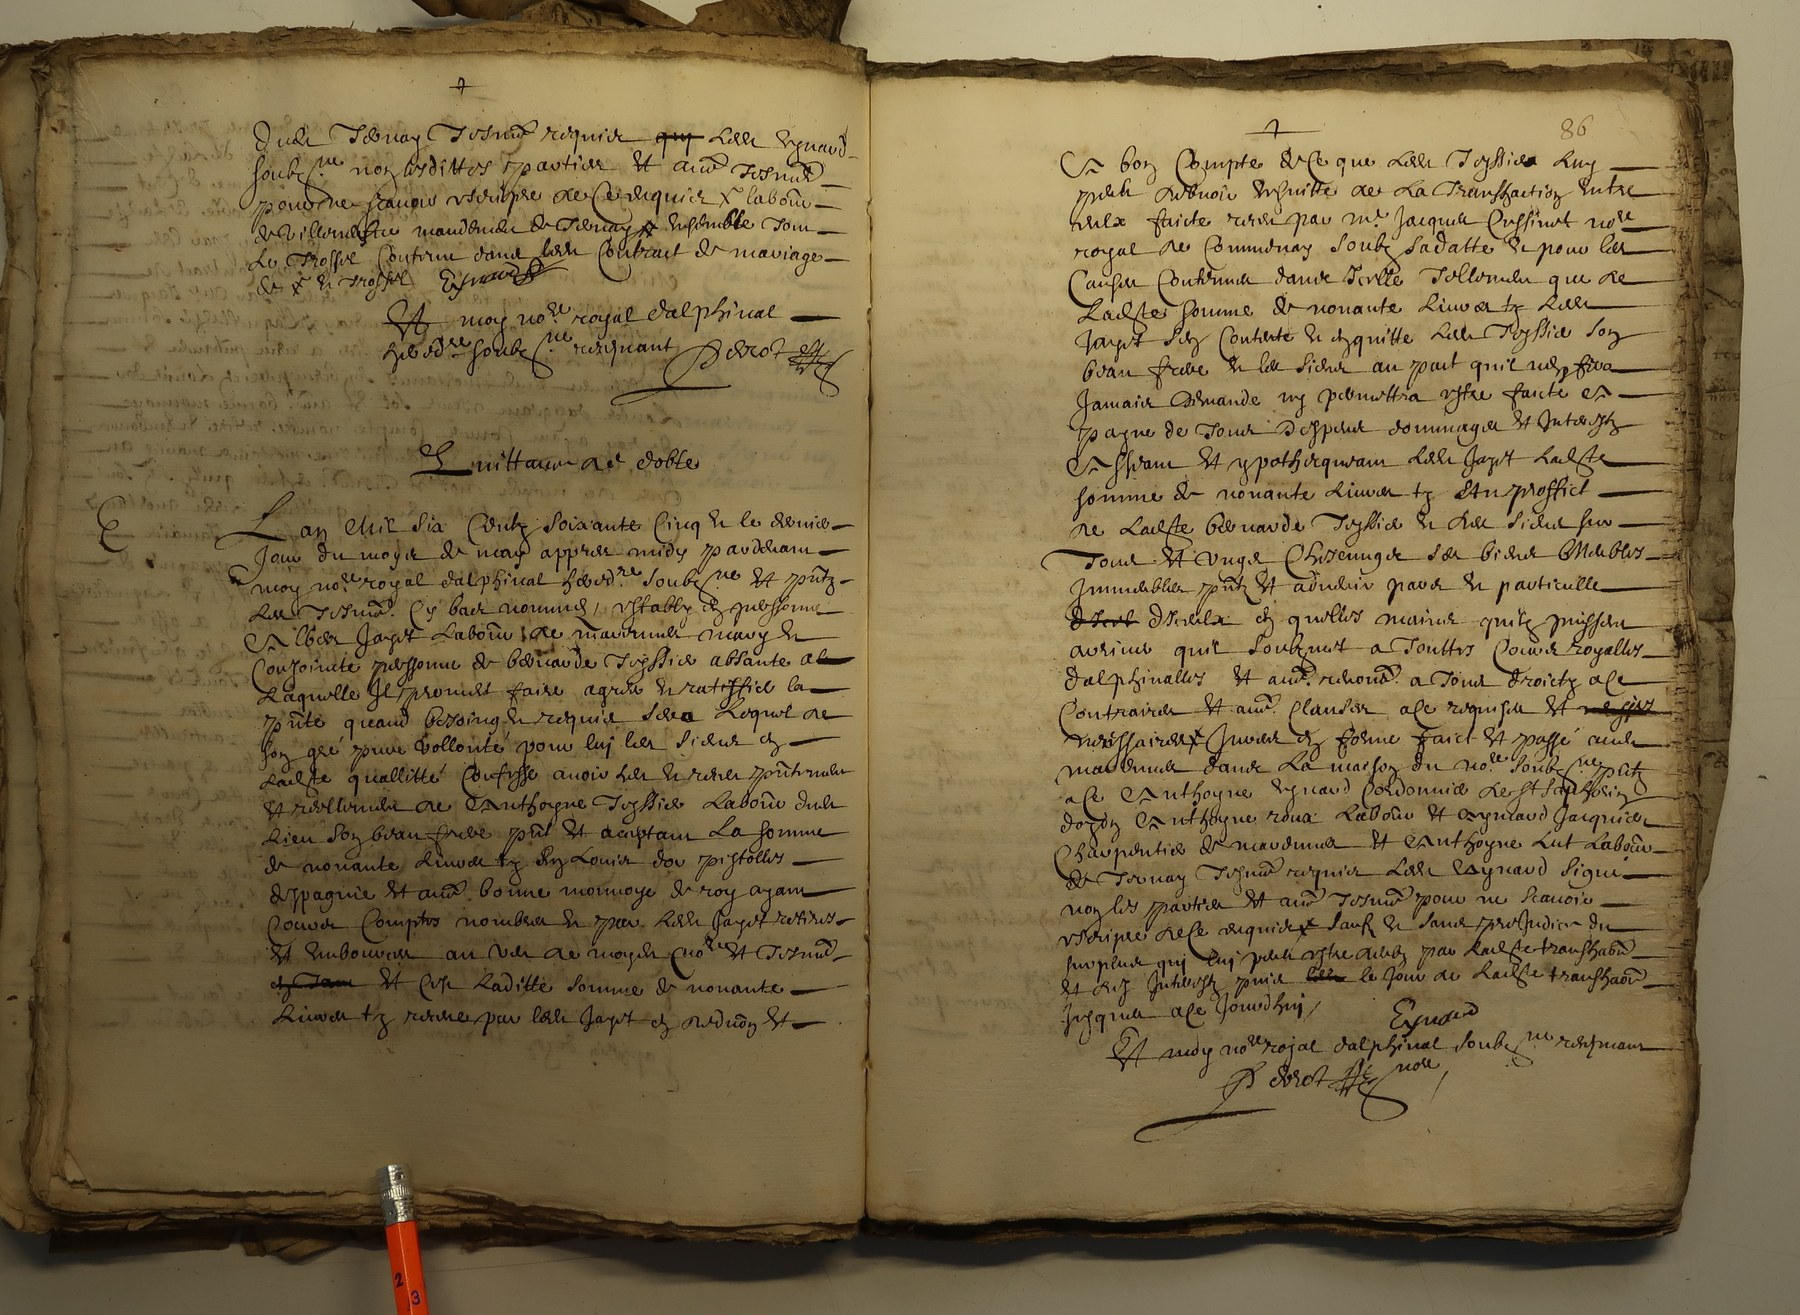 dudit Ternay tesmo. requis qui ledit Eynard
soubz.ne non lesdittes parties et au.e tesmo.
pour ne scavoir escripre de ce requis labou.r
de Villeneufve mandement de Ternay ensemble
le trossel contenu dans ledit contract de mariage
Eynard
Et moy no.re royal dalphinal
hered.re soubz.ne recepvant Perrot
Quittance de dobte
L an mil six centz soixante cinq et le dernier
jour du moys de may appres midy pardevant
moy no.re royal dalphinal hered.re soubz.ne et p.ntz
les tesmo. cy bas nommes, estably en personne
labour de marennes mary et
conjointe personne de bernarde Teyssier absante a
laquelle il promet faire agreer et ratiffier la
p.nte quand bessoing et requis sera lequel de
son gré pure vollonté pour luy les siens en
ladite quallitté confesse avoir heu et receu p.ntement
et reellement de Anthoyne Teyssier labou.r dudit
lieu son beau frere p.nt et acceptant la somme
de nonante livres tz en Louis dor pistolles
despagnie et au.e bonne monnoye de roy ayant
cours comptes nombres et par ledit Jayet retirés
et embources au veu de moydit no.re et tesmo.
et cest laditte somme de nonante
livres tz receue par ledit Jayet en deduon et
86
A bon compte de ce que ledit Teyssier luy
peult debvoir ensuitte de la transaction entre
eulx faicte receue par m.e Jacques Cussinet no.re
royal de Communay soubz sa datte et pour les
causes contenues dans icelle tellement que de
ladite somme de nonante livres tz ledit
Jayet sen contente et en quitte ledit Teyssier son
beau frere et les siens au pact quil nen fera
jamais demande ny permettra estre faicte a
payne de tous despens dommages et interestz
Assurant et ypothequant ledit Jayet ladite
somme de nonante livres tz au proffict
de ladite bernarde Teyssier et des siens sur
tous et ungs chescungs ses biens meubles
immeubles p.ntz et advenir pour et particulle
diceulx en quelles mains quilz puissent
arriver quil soubmet a touttes cours royalles
dalphinalles et au.e renon.e a tous droictz a ce
contraires et au.e clauses a ce requises et
nessaires en forme faict et passé audit
marennes dans la maison du no.re soubz.ne p.ntz
a ce Anthoyne Eynard cordonnier de St Saphorin
dozon Anthoyne roux labou.r et Eynard Jacquier
charpentier de marennes et Anthoyne Lut labou.r
de Ternay tesmo. requis ledit Eynard signé
non les parties et au.e tesmo. pour ne scavoir
escripre de ce requis sauf et sans prejudice du
surplus qui luy peult estre deub par ladite transaction
et des interestz puis le jour de ladite transaction
jusques a ce jourdhuy
Eynard
Et moy no.re royal dalphinal soubz.ne recepvant
Perrot no.re